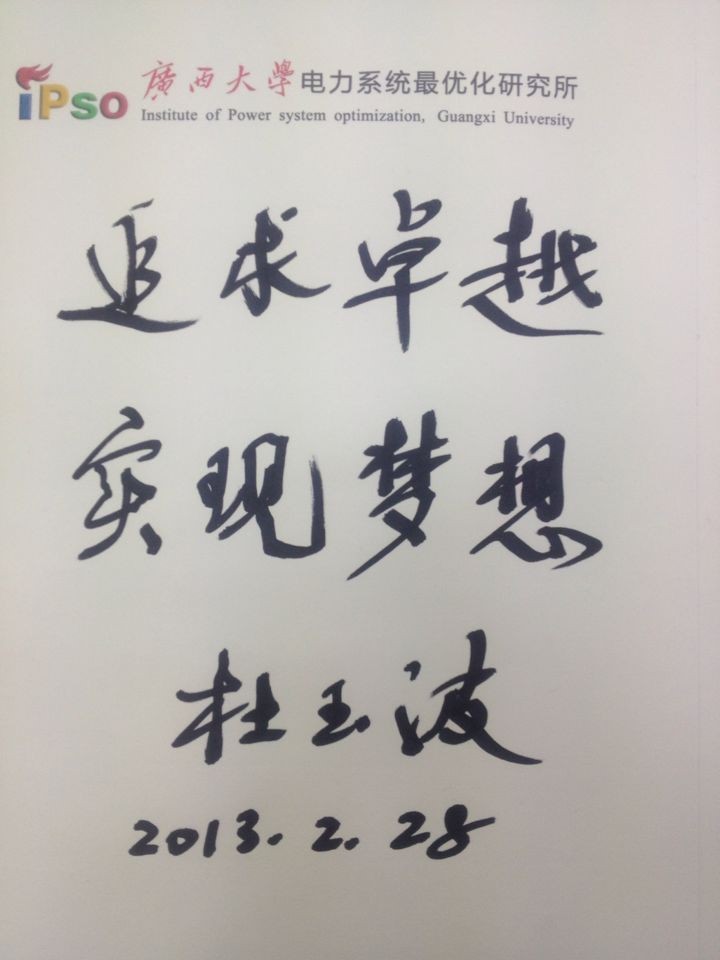 iPso 廣西大學电力系统最优化研究所
Institute of Power system optimization, Guangxi University
追求卓越
实现梦想
杜玉波
2013.2.28